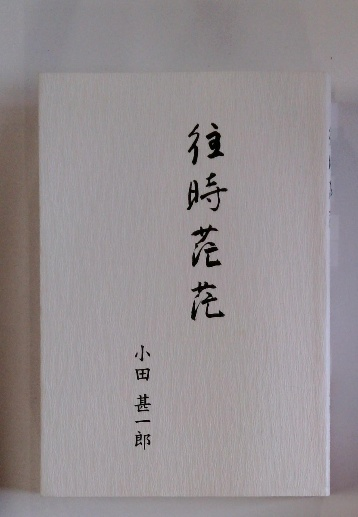 往時茫茫
小田甚一郎